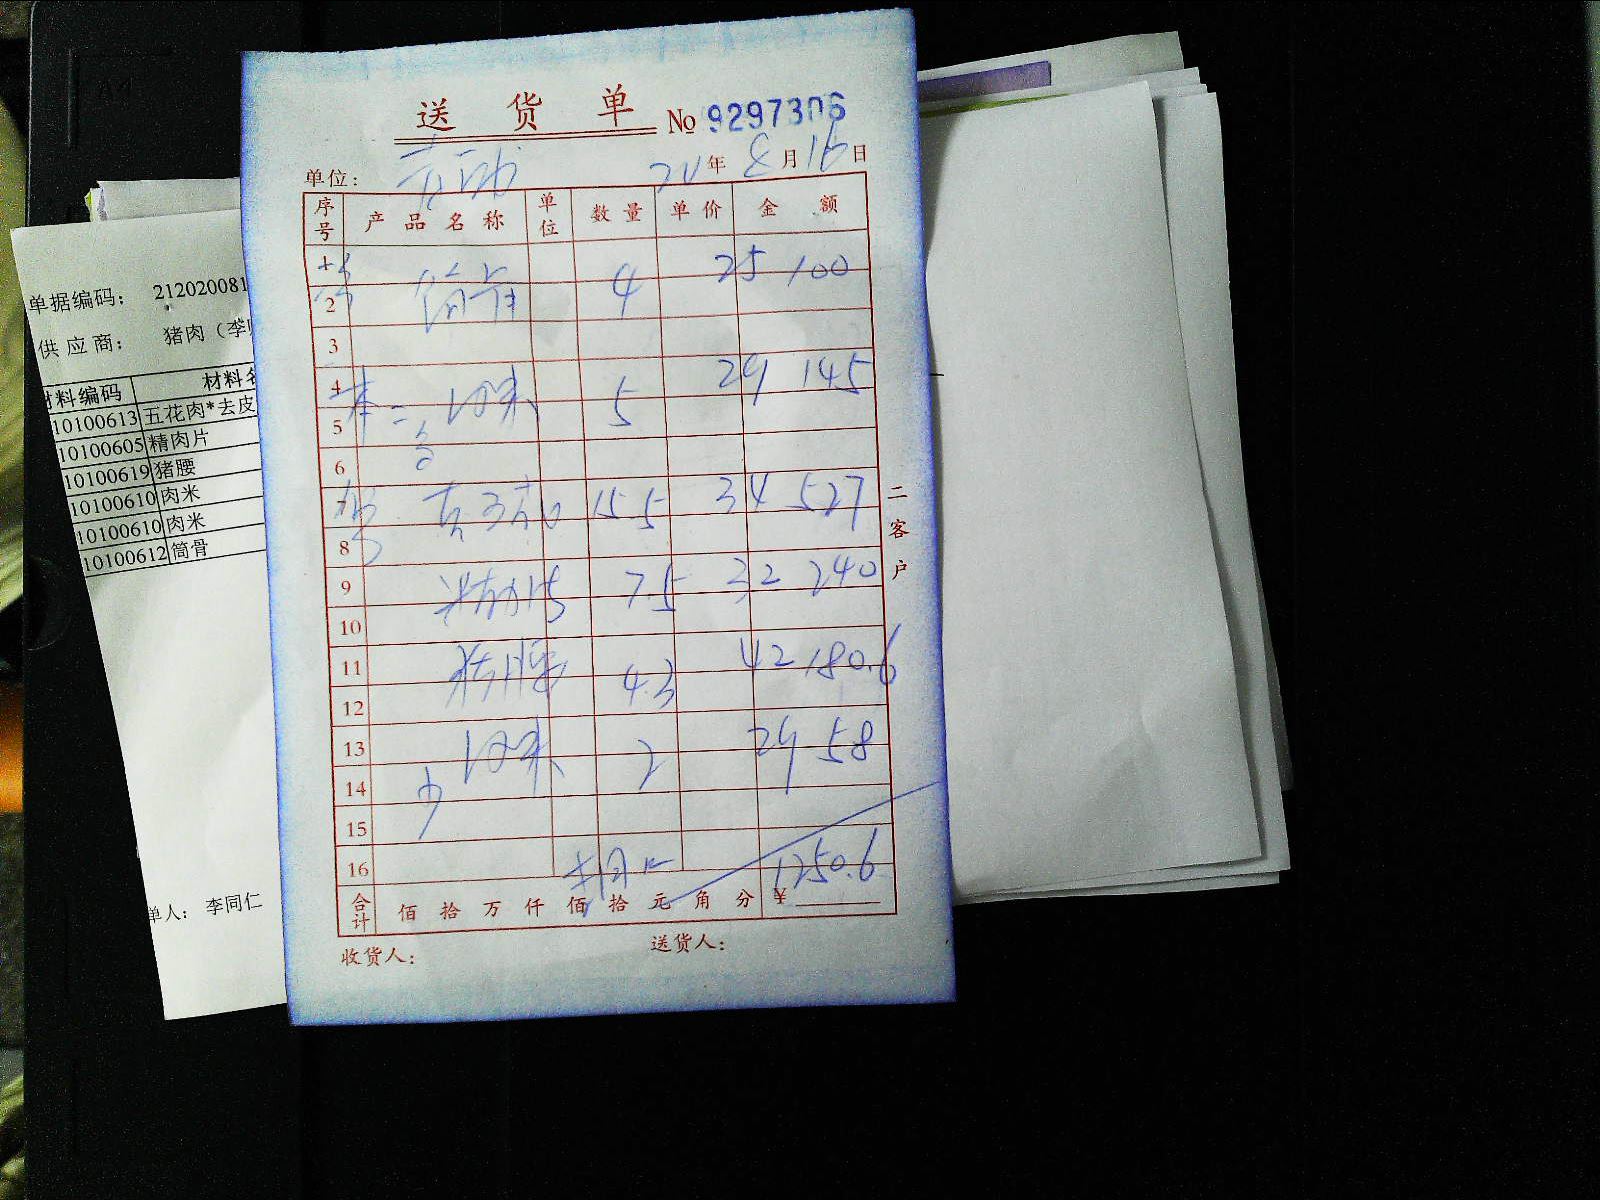 送货单 No 9297306
单位: 20年8月16日
序号 产品名称 单位 数量 单价 金额
筒骨 4 25 100
2
3
4 肉米 5 29 145
5
6
7 15.5 34 527
8
9 7.5 32 240
10
11 猪腰 4.3 42 180.6
12
13 肉米 2 29 58
14
15
16
合计 佰拾万仟佰拾元角分 ¥1250.6
收货人: 送货人:
二客户
单据编码: 212020081
供应商: 猪肉（李
材料编码 材料名
10100613 五花肉*去皮
10100605 精肉片
10100619 猪腰
10100610 肉米
10100610 肉米
10100612 筒骨
单人: 李同仁